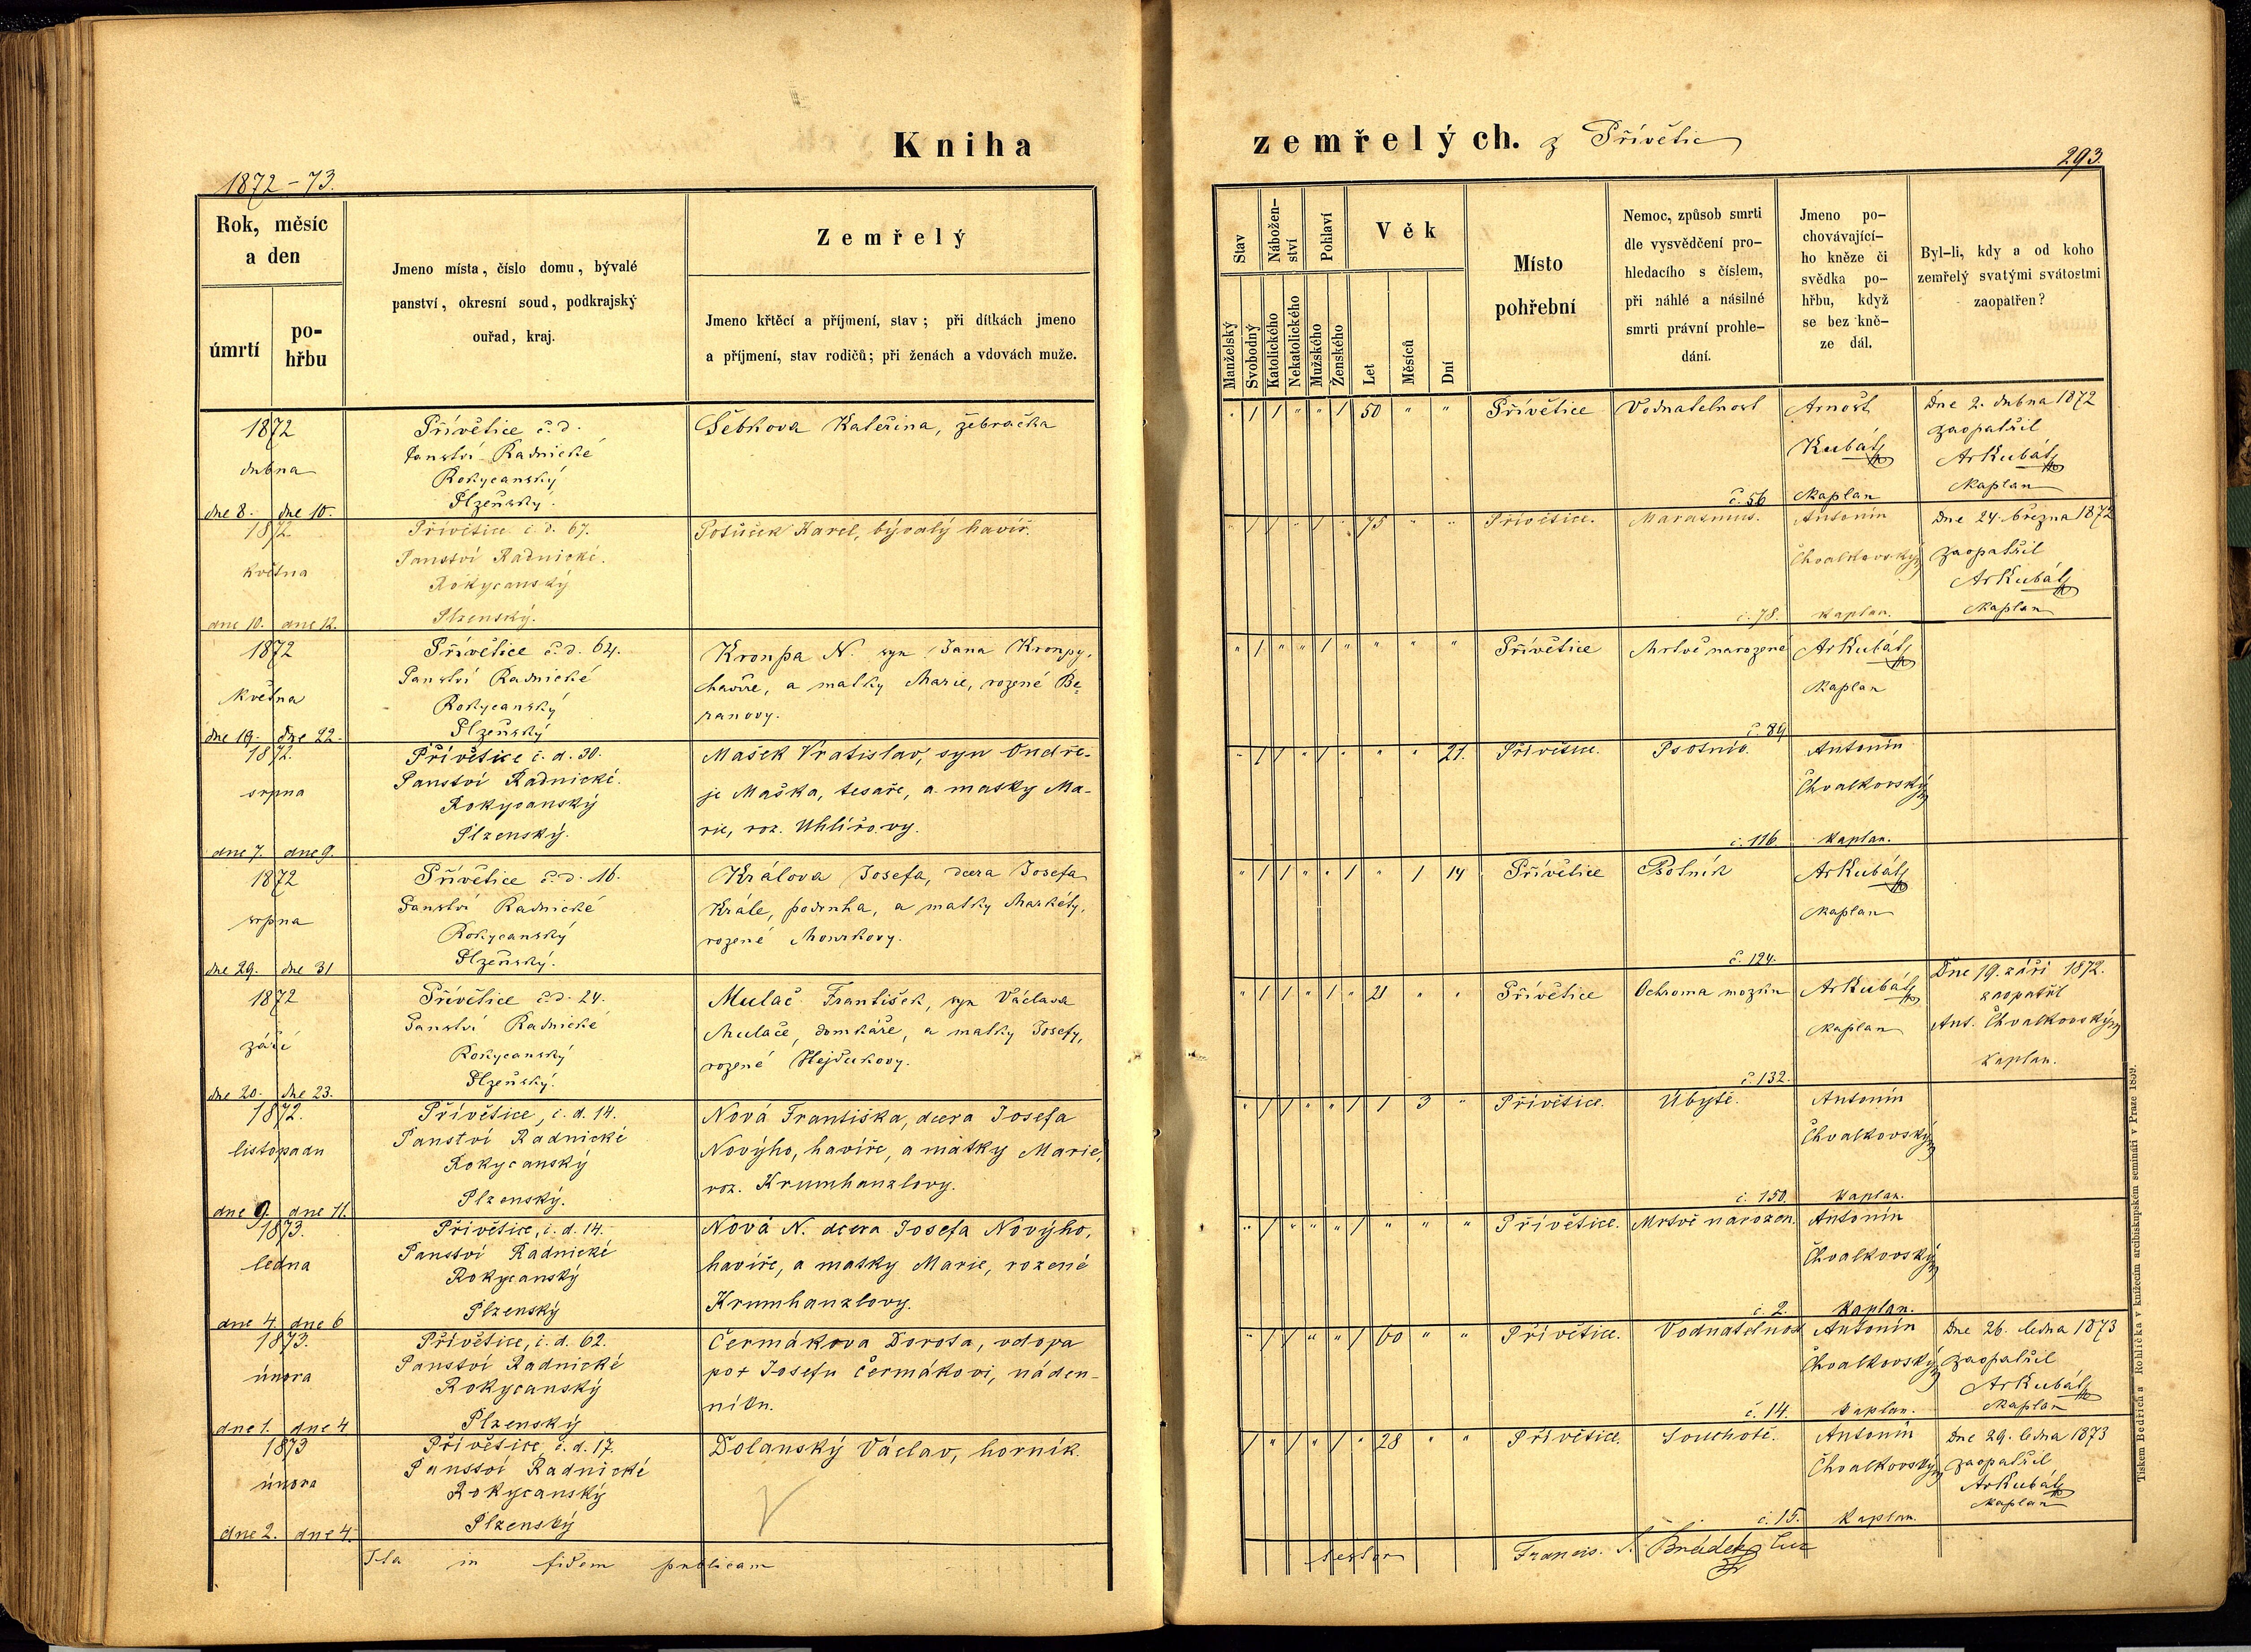 Kniha
zemřelých. z Přívětic
1872-73.
293.
Rok, měsíc
a den
úmrtí
po-
hřbu
Jmeno místa, číslo domu, bývalé
panství, okresní soud, podkrajský
ouřad, kraj.
Zemřelý
Jmeno křtěcí a příjmení, stav; při dítkách jmeno
a příjmení, stav rodičů; při ženách a vdovách muže.
Stav
Nábožen-
ství
Pohlaví
Věk
Manželský
Svobodný
Katolického
Nekatolického
Mužského
Ženského
Let
Měsíců
Dní
Místo
pohřební
Nemoc, způsob smrti
dle vysvědčení pro-
hledacího s číslem,
při náhlé a násilné
smrti právní prohle-
dání.
Jmeno po-
chovávající-
ho kněze či
svědka po-
hřbu, když
se bez kně-
ze dál.
Byl-li, kdy a od koho
zemřelý svatými svátostmi
zaopatřen?
1872
dubna
dne 8. dne 10.
Přívětice č. d.
Panství Radnické
Rokycanský
Plzeňský.
Šebkova Kateřina, žebračka
" 1 1 " " 1 50 " "
Přívětice
Vodnatelnost
č. 56
Arnošt
Kubát
Kaplan
Dne 2. dubna 1872
zaopatřil
ArKubát
Kaplan
1872
května
dne 10. dne 12.
Přívětice č. d. 67.
Panství Radnické.
Rokycanský
Plzenský.
Potůček Karel, bývalý havíř.
" 1 1 " 1 " 75 " "
Přívětice.
Marasmus.
č. 78.
Antonín
Chvalkovský
kaplan.
Dne 24. března 1872
zaopatřil
ArKubát
Kaplan
1872
Května
dne 19. dne 22.
Přívětice č. d. 64.
Panství Radnické
Rokycanský
Plzeňský
Kronpa N. syn Jana Kronpy,
havíře, a matky Marie, rozené Be-
ranovy.
" 1 " " 1 " " " "
Přívětice
Mrtvě narozené
č. 89
ArKubát
Kaplan
1872.
srpna
dne 7. dne 9.
Přívětice č. d. 30.
Panství Radnické.
Rokycanský
Plzenský.
Mašek Vratislav, syn Ondře-
je Maška, tesaře, a matky Ma-
rie, roz. Uhlířovy.
" 1 1 " 1 " " " 21.
Přívětice.
Psotník.
č. 116
Antonín
Chvalkovský
kaplan.
1872
srpna
dne 29. dne 31
Přívětice č. d. 16.
Panství Radnické
Rokycanský
Plzeňský.
Králova Josefa, dcera Josefa
Krále, podruha, a matky Markéty,
rozené Mourkovy.
" 1 1 " " 1 " 1 14
Přívětice
Psotník
č. 124.
ArKubát
Kaplan
1872
září
dne 20. dne 23.
Přívětice č. d. 24.
Panství Radnické
Rokycanský
Plzeňský.
Mulač František, syn Václava
Mulače, domkáře, a matky Josefy,
rozené Hejdukovy.
" 1 1 " 1 " 21 " "
Přívětice
Ochroma mozku
č. 132.
ArKubát
Kaplan
Dne 19. září 1872.
zaopatřil
Ant. Chvalkovský
kaplan.
1872.
listopadu
dne 9. dne 11.
Přívětice, č. d. 14.
Panství Radnické
Rokycanský
Plzenský.
Nová Františka, dcera Josefa
Novýho, havíře, a matky Marie,
roz. Krumhanzlovy.
" 1 1 " " 1 1 3 "
Přívětice.
Úbytě.
č. 150.
Antonín
Chvalkovský
kaplan.
1873.
ledna
dne 4. dne 6
Přívětice, č. d. 14.
Panství Radnické
Rokycanský
Plzenský
Nová N. dcera Josefa Novýho,
havíře, a matky Marie, rozené
Krumhanzlovy.
" 1 " " " 1 " " "
Přívětice.
Mrtvě narozen.
č. 2.
Antonín
Chvalkovský
kaplan.
1873.
února
dne 1. dne 4
Přívětice, č. d. 62.
Panství Radnické
Rokycanský
Plzenský
Čermákova Dorota, vdova
po † Josefu Čermákovi, náden-
níku.
" 1 1 " " 1 60 " "
Přívětice.
Vodnatelnost
č. 14.
Antonín
Chvalkovský
kaplan.
Dne 26. ledna 1873
zaopatřil
ArKubát
Kaplan
1873
února
dne 2. dne 4.
Přívětice, č. d. 17.
Panství Radnické
Rokycanský
Plzenský
Dolanský Václav, horník.
1 " 1 " 1 " 28 " "
Přívětice.
Souchotě.
č. 15.
Antonín
Chvalkovský
kaplan.
Dne 29. ledna 1873
zaopatřil
ArKubát
Kaplan
Ita in fidem publicam
testor Francis. S. Brádek
Tiskem Bedřicha Rohlíčka v knížecím arcibiskupském semináři v Praze 1859.